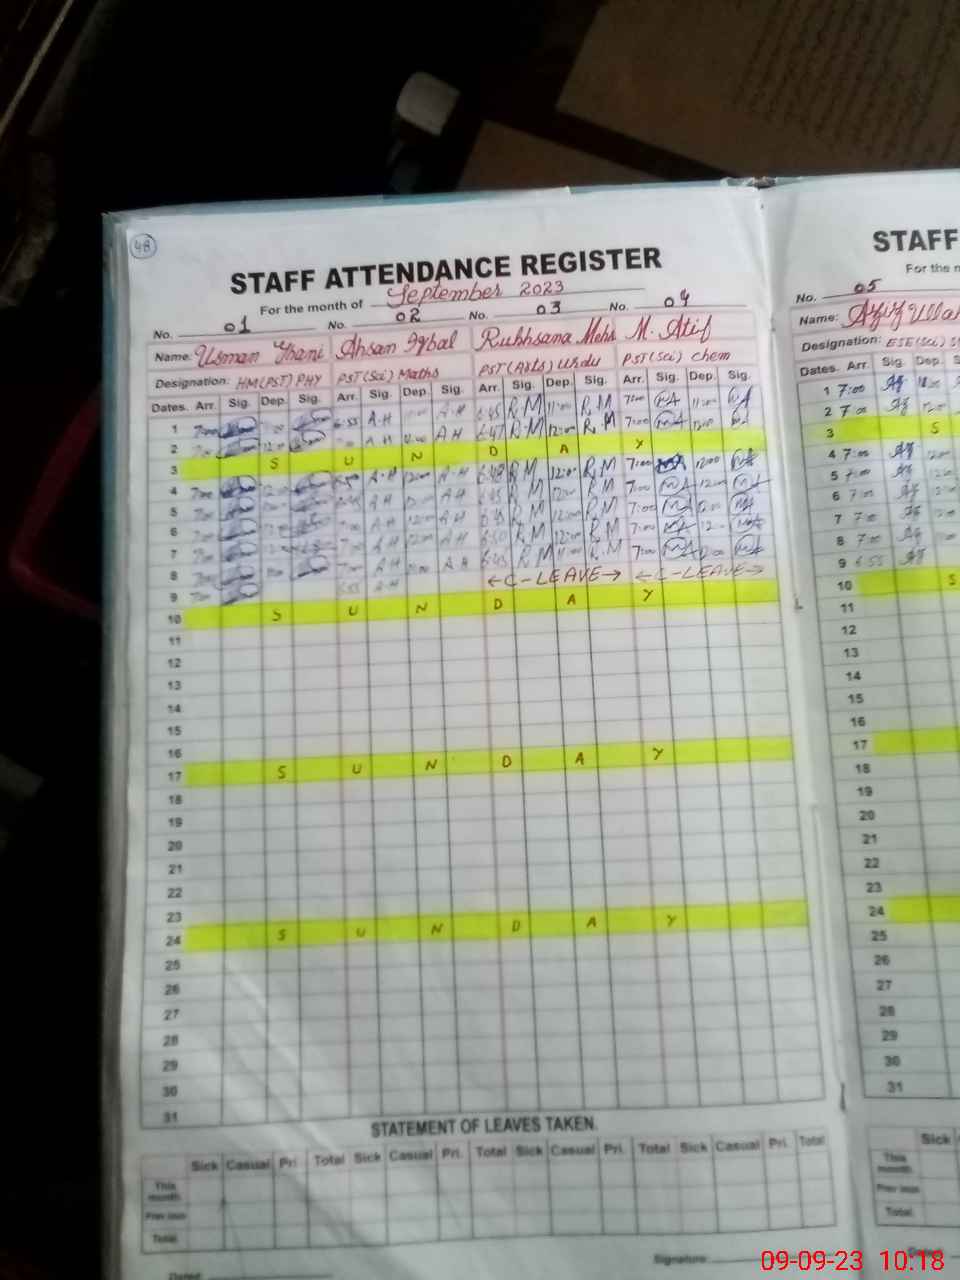 48
STAFF ATTENDANCE REGISTER
For the month of September 2023
No. 01 No. 02 No. 03 No. 04
Name: Usman Ghani Ahsan Iqbal Rukhsana Mehr M. Atif
Designation: HM(PST) PHY PST(Sci) Maths PST(Arts) Urdu PST(Sci) Chem
Dates. Arr. Sig. Dep. Sig. Arr. Sig. Dep. Sig. Arr. Sig. Dep. Sig. Arr. Sig. Dep. Sig.
1 7:00 6:55 A.H A.H 6:45 R.M 11:00 R.M 7:00 MA 11:00 MA
2 7:00 12:00 A.H A.H 6:47 R.M 12:00 R.M 7:00 MA 12:00 MA
3 S U N D A Y
4 7:00 A.H 12:00 A.H 6:48 R.M 12:00 R.M 7:00 MA 12:00 MA
5 7:00 A.H A.H 6:45 R.M R.M 7:00 MA 12:00 MA
6 7:00 A.H 12:00 A.H 6:45 R.M 12:00 R.M 7:00 MA 12:00 MA
7 7:00 A.H 12:00 A.H 6:50 R.M 12:00 R.M 7:00 MA MA
8 7:00 7:00 A.H A.H 6:45 R.M 11:00 R.M 7:00 MA MA
9 7:00 6:55 A.H ←C-LEAVE→ ←C-LEAVE→
10 S U N D A Y
11
12
13
14
15
16
17 S U N D A Y
18
19
20
21
22
23
24 S U N D A Y
25
26
27
28
29
30
31
STATEMENT OF LEAVES TAKEN.
Sick Casual Pri. Total Sick Casual Pri. Total Sick Casual Pri. Total Sick Casual Pri. Total
This month
Total
Signature
Dated
STAFF
For the m
No. 05
Name: Aziz Ullah
Designation: ESE(Sci)
Dates. Arr. Sig. Dep. S
1 7:00 Az
2 7:00 Az 12:00
3 S
4 7:00 Az 12:00
5 7:00 Az
6 7:00 Az
7 7:00 Az
8 7:00 Az
9 6:55 Az
10 S
11
12
13
14
15
16
17
18
19
20
21
22
23
24
25
26
27
28
29
30
31
Sick
This month
Total
09-09-23 10:18